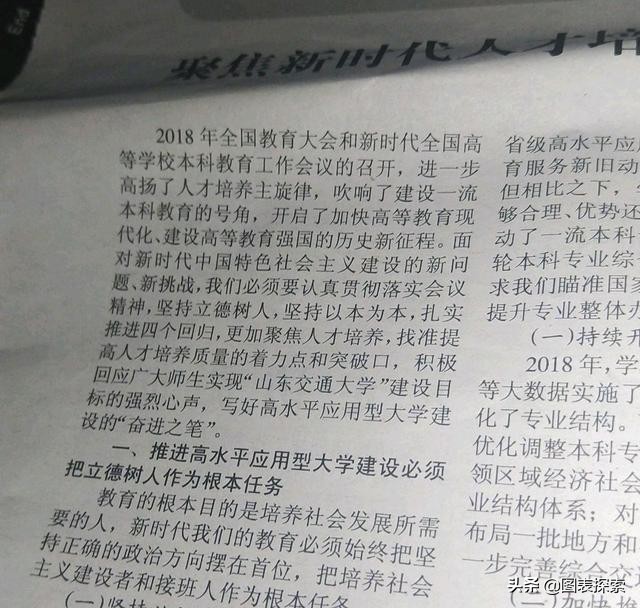 End
聚焦新时代人才培
2018 年全国教育大会和新时代全国高
等学校本科教育工作会议的召开，进一步
高扬了人才培养主旋律，吹响了建设一流
本科教育的号角，开启了加快高等教育现
代化、建设高等教育强国的历史新征程。面
对新时代中国特色社会主义建设的新问
题、新挑战，我们必须要认真贯彻落实会议
精神，坚持立德树人，坚持以本为本，扎实
推进四个回归，更加聚焦人才培养，找准提
高人才培养质量的着力点和突破口，积极
回应广大师生实现“山东交通大学”建设目
标的强烈心声，写好高水平应用型大学建
设的“奋进之笔”。
一、推进高水平应用型大学建设必须
把立德树人作为根本任务
教育的根本目的是培养社会发展所需
要的人，新时代我们的教育必须始终把坚
持正确的政治方向摆在首位，把培养社会
主义建设者和接班人作为根本任务
(一)坚持
省级高水平应
育服务新旧动
但相比之下，
够合理、优势还
动了一流本科
轮本科专业综
求我们瞄准国家
提升专业整体办
(一)持续开
2018 年，学
等大数据实施了
化了专业结构。
优化调整本科专
领区域经济社会
业结构体系；对
布局一批地方和
一步完善综合交
加快
头条 @图表探索